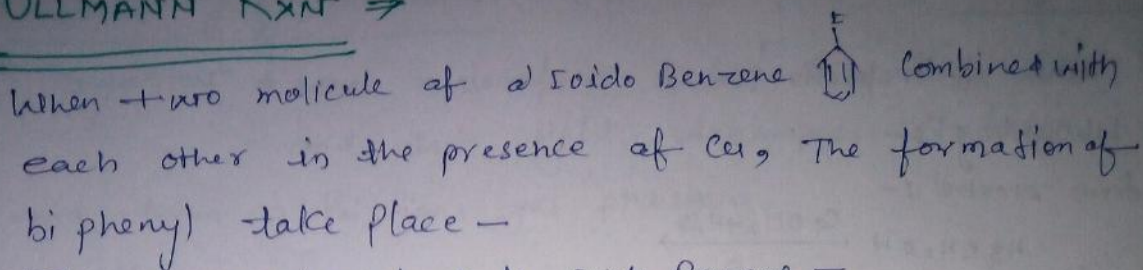 ULLMANN RXN ⇒
When two molicule of a Ioido Benzene I Combined with
each other in the presence of Cu, The formation of
bi phenyl take place —